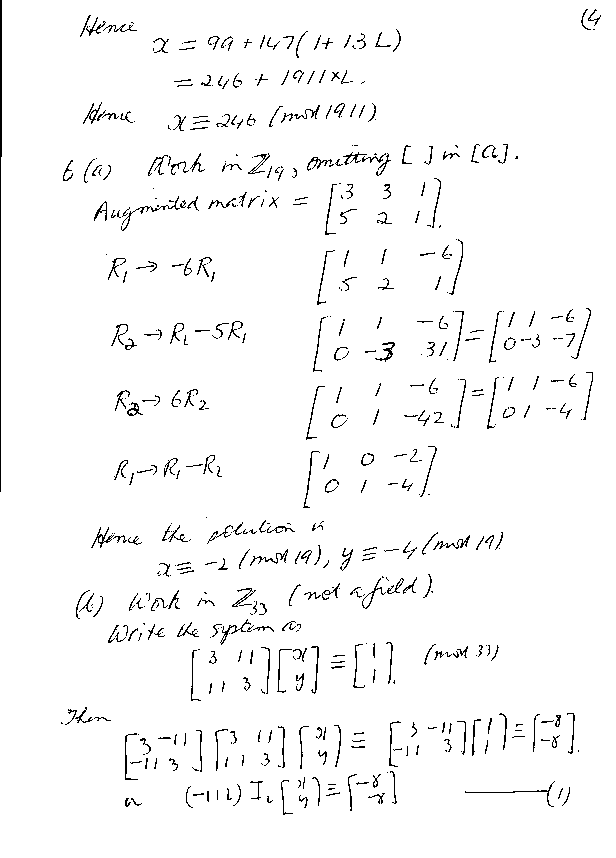 (4
Hence
x = 99 + 147(1 + 13L)
= 246 + 1911×L.
Hence x ≡ 246 (mod 1911)
6 (a) Work in Z₁₉, omitting [ ] in [a].
Augmented matrix = [3 3 1; 5 2 1].
R₁ → -6R₁ [1 1 -6; 5 2 1]
R₂ → R₂ - 5R₁ [1 1 -6; 0 -3 31] = [1 1 -6; 0 -3 -7]
R₂ → 6R₂ [1 1 -6; 0 1 -42] = [1 1 -6; 0 1 -4]
R₁ → R₁ - R₂ [1 0 -2; 0 1 -4].
Hence the solution is
x ≡ -2 (mod 19), y ≡ -4 (mod 19)
(b) Work in Z₃₃ (not a field).
Write the system as
[3 11; 11 3] [x; y] ≡ [1; 1]. (mod 33)
Then
[3 -11; -11 3] [3 11; 11 3] [x; y] ≡ [3 -11; -11 3] [1; 1] ≡ [-8; -8].
or (-112) I₂ [x; y] ≡ [-8; -8] —— (1)